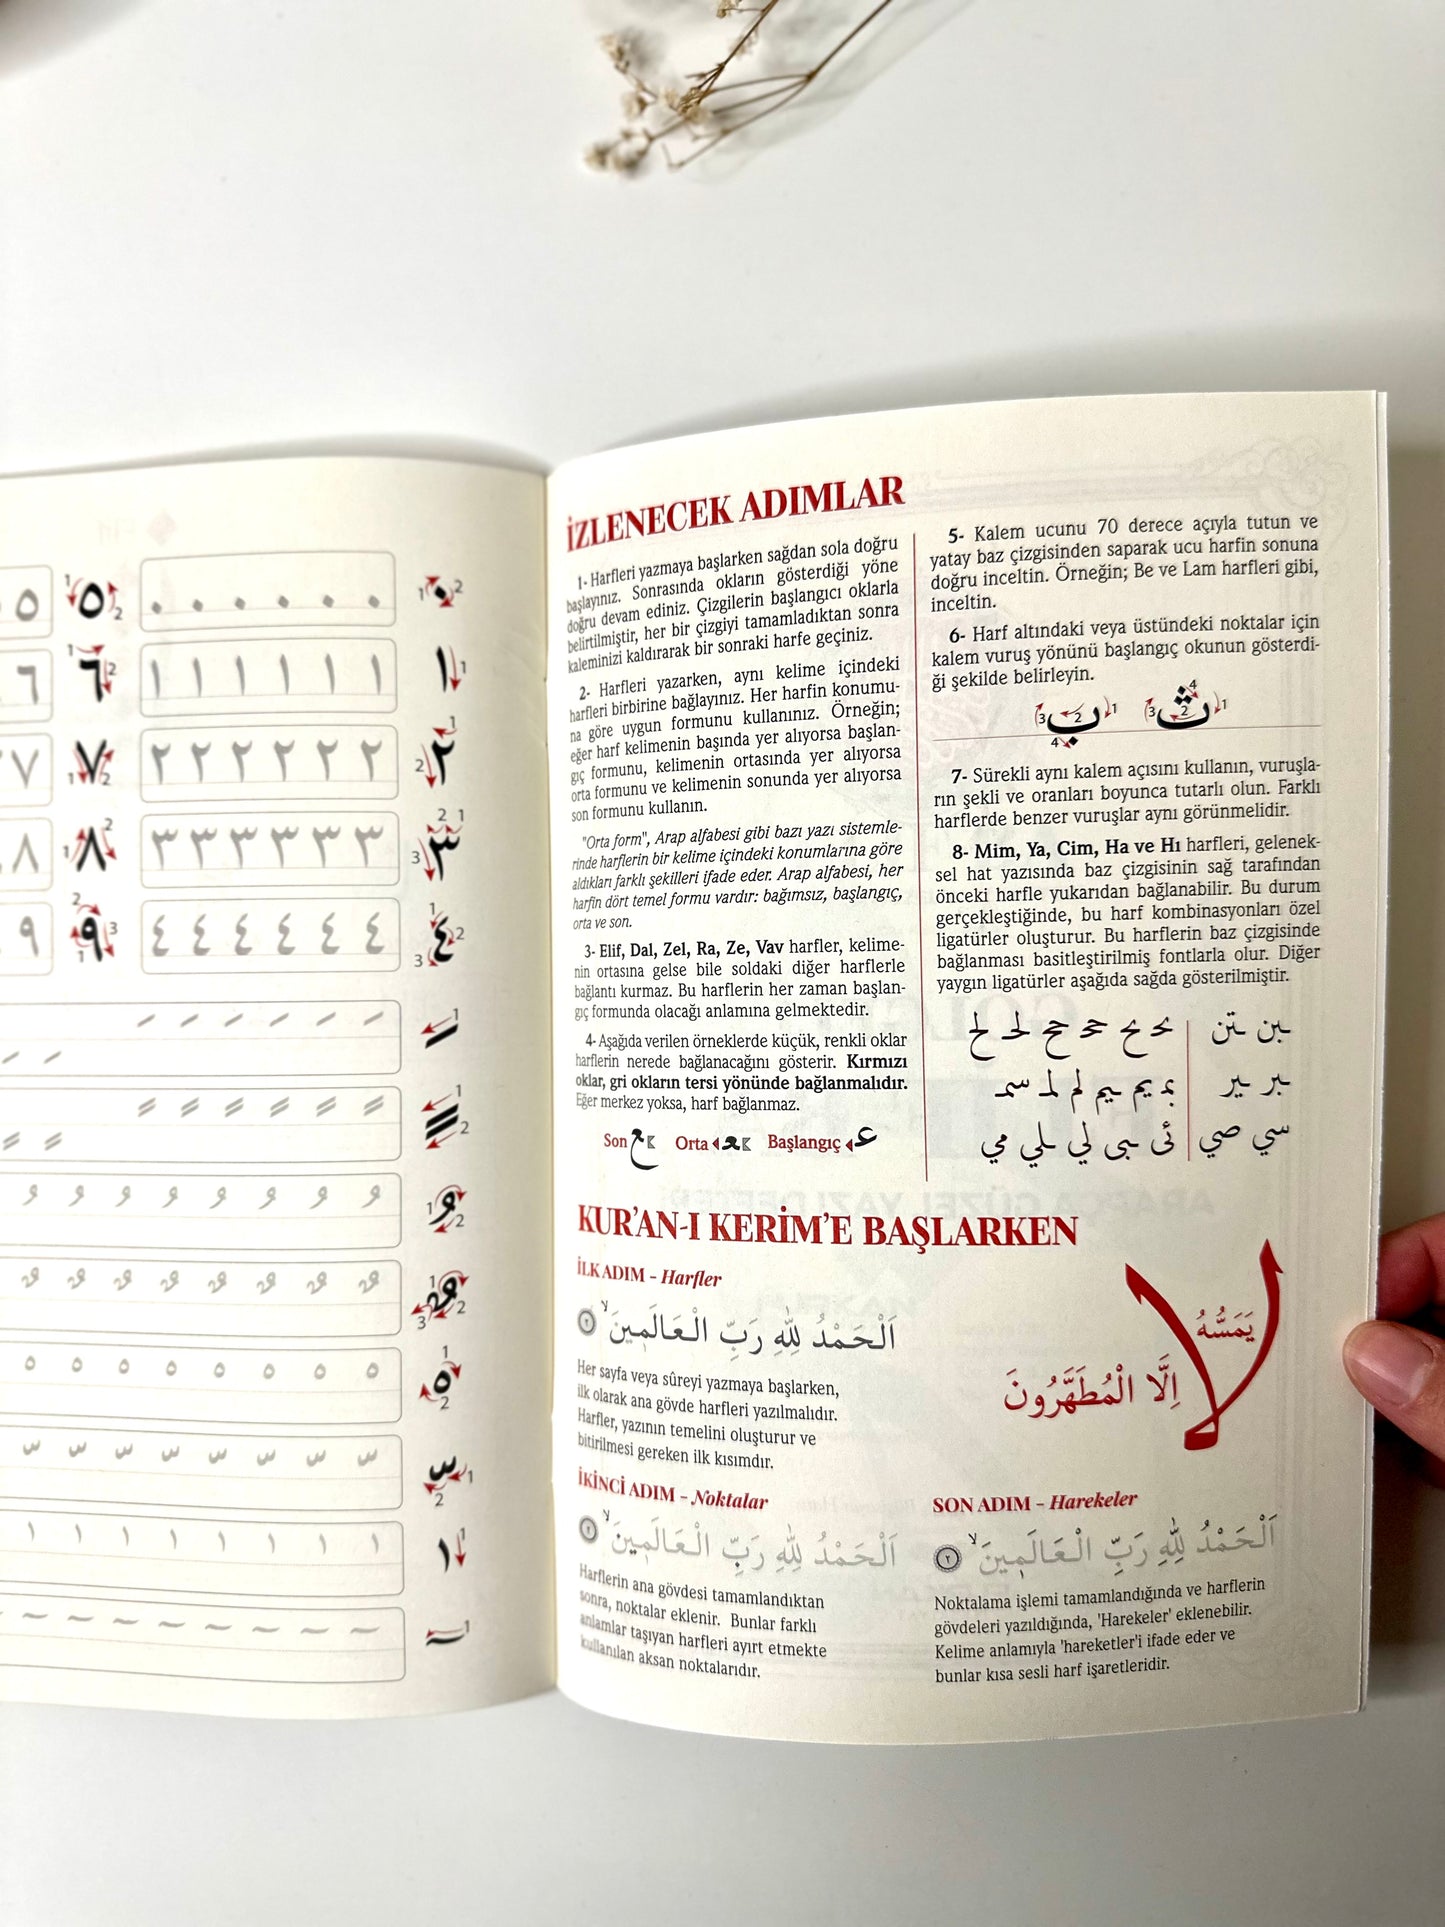 ٥
١ ٢
٠ ٠ ٠ ٠ ٠ ٠
١ ٢
٦
١ ١ ١ ١ ١ ١
١
٧
٢ ٢ ٢ ٢ ٢ ٢
٢
٨
٣ ٣ ٣ ٣ ٣ ٣
٣
٩
٤ ٤ ٤ ٤ ٤ ٤
٤
İZLENECEK ADIMLAR
1- Harfleri yazmaya başlarken sağdan sola doğru
başlayınız. Sonrasında okların gösterdiği yöne
doğru devam ediniz. Çizgilerin başlangıcı oklarla
belirtilmiştir, her bir çizgiyi tamamladıktan sonra
kaleminizi kaldırarak bir sonraki harfe geçiniz.
2- Harfleri yazarken, aynı kelime içindeki
harfleri birbirine bağlayınız. Her harfin konumu-
na göre uygun formunu kullanınız. Örneğin;
eğer harf kelimenin başında yer alıyorsa başlan-
gıç formunu, kelimenin ortasında yer alıyorsa
orta formunu ve kelimenin sonunda yer alıyorsa
son formunu kullanın.
"Orta form", Arap alfabesi gibi bazı yazı sistemle-
rinde harflerin bir kelime içindeki konumlarına göre
aldıkları farklı şekilleri ifade eder. Arap alfabesi, her
harfin dört temel formu vardır: bağımsız, başlangıç,
orta ve son.
3- Elif, Dal, Zel, Ra, Ze, Vav harfler, kelime-
nin ortasına gelse bile soldaki diğer harflerle
bağlantı kurmaz. Bu harflerin her zaman başlan-
gıç formunda olacağı anlamına gelmektedir.
4- Aşağıda verilen örneklerde küçük, renkli oklar
harflerin nerede bağlanacağını gösterir. Kırmızı
oklar, gri okların tersi yönünde bağlanmalıdır.
Eğer merkez yoksa, harf bağlanmaz.
Son Orta Başlangıç
5- Kalem ucunu 70 derece açıyla tutun ve
yatay baz çizgisinden saparak ucu harfin sonuna
doğru inceltin. Örneğin; Be ve Lam harfleri gibi,
inceltin.
6- Harf altındaki veya üstündeki noktalar için
kalem vuruş yönünü başlangıç okunun gösterdi-
ği şekilde belirleyin.
ب ث
7- Sürekli aynı kalem açısını kullanın, vuruşla-
rın şekli ve oranları boyunca tutarlı olun. Farklı
harflerde benzer vuruşlar aynı görünmelidir.
8- Mim, Ya, Cim, Ha ve Hı harfleri, gelenek-
sel hat yazısında baz çizgisinin sağ tarafından
önceki harfle yukarıdan bağlanabilir. Bu durum
gerçekleştiğinde, bu harf kombinasyonları özel
ligatürler oluşturur. Bu harflerin baz çizgisinde
bağlanması basitleştirilmiş fontlarla olur. Diğer
yaygın ligatürler aşağıda sağda gösterilmiştir.
KUR'AN-I KERİM'E BAŞLARKEN
İLK ADIM – Harfler
اَلْحَمْدُ لِلّٰهِ رَبِّ الْعَالَمٖينَۙ ٢
Her sayfa veya sûreyi yazmaya başlarken,
ilk olarak ana gövde harfleri yazılmalıdır.
Harfler, yazının temelini oluşturur ve
bitirilmesi gereken ilk kısımdır.
İKİNCİ ADIM – Noktalar
اَلْحَمْدُ لِلّٰهِ رَبِّ الْعَالَمٖينَۙ ٢
Harflerin ana gövdesi tamamlandıktan
sonra, noktalar eklenir. Bunlar farklı
anlamlar taşıyan harfleri ayırt etmekte
kullanılan aksan noktalarıdır.
لا يَمَسُّهُ
اِلَّا الْمُطَهَّرُونَ
SON ADIM – Harekeler
اَلْحَمْدُ لِلّٰهِ رَبِّ الْعَالَمٖينَۙ ٢
Noktalama işlemi tamamlandığında ve harflerin
gövdeleri yazıldığında, 'Harekeler' eklenebilir.
Kelime anlamıyla 'hareketler'i ifade eder ve
bunlar kısa sesli harf işaretleridir.